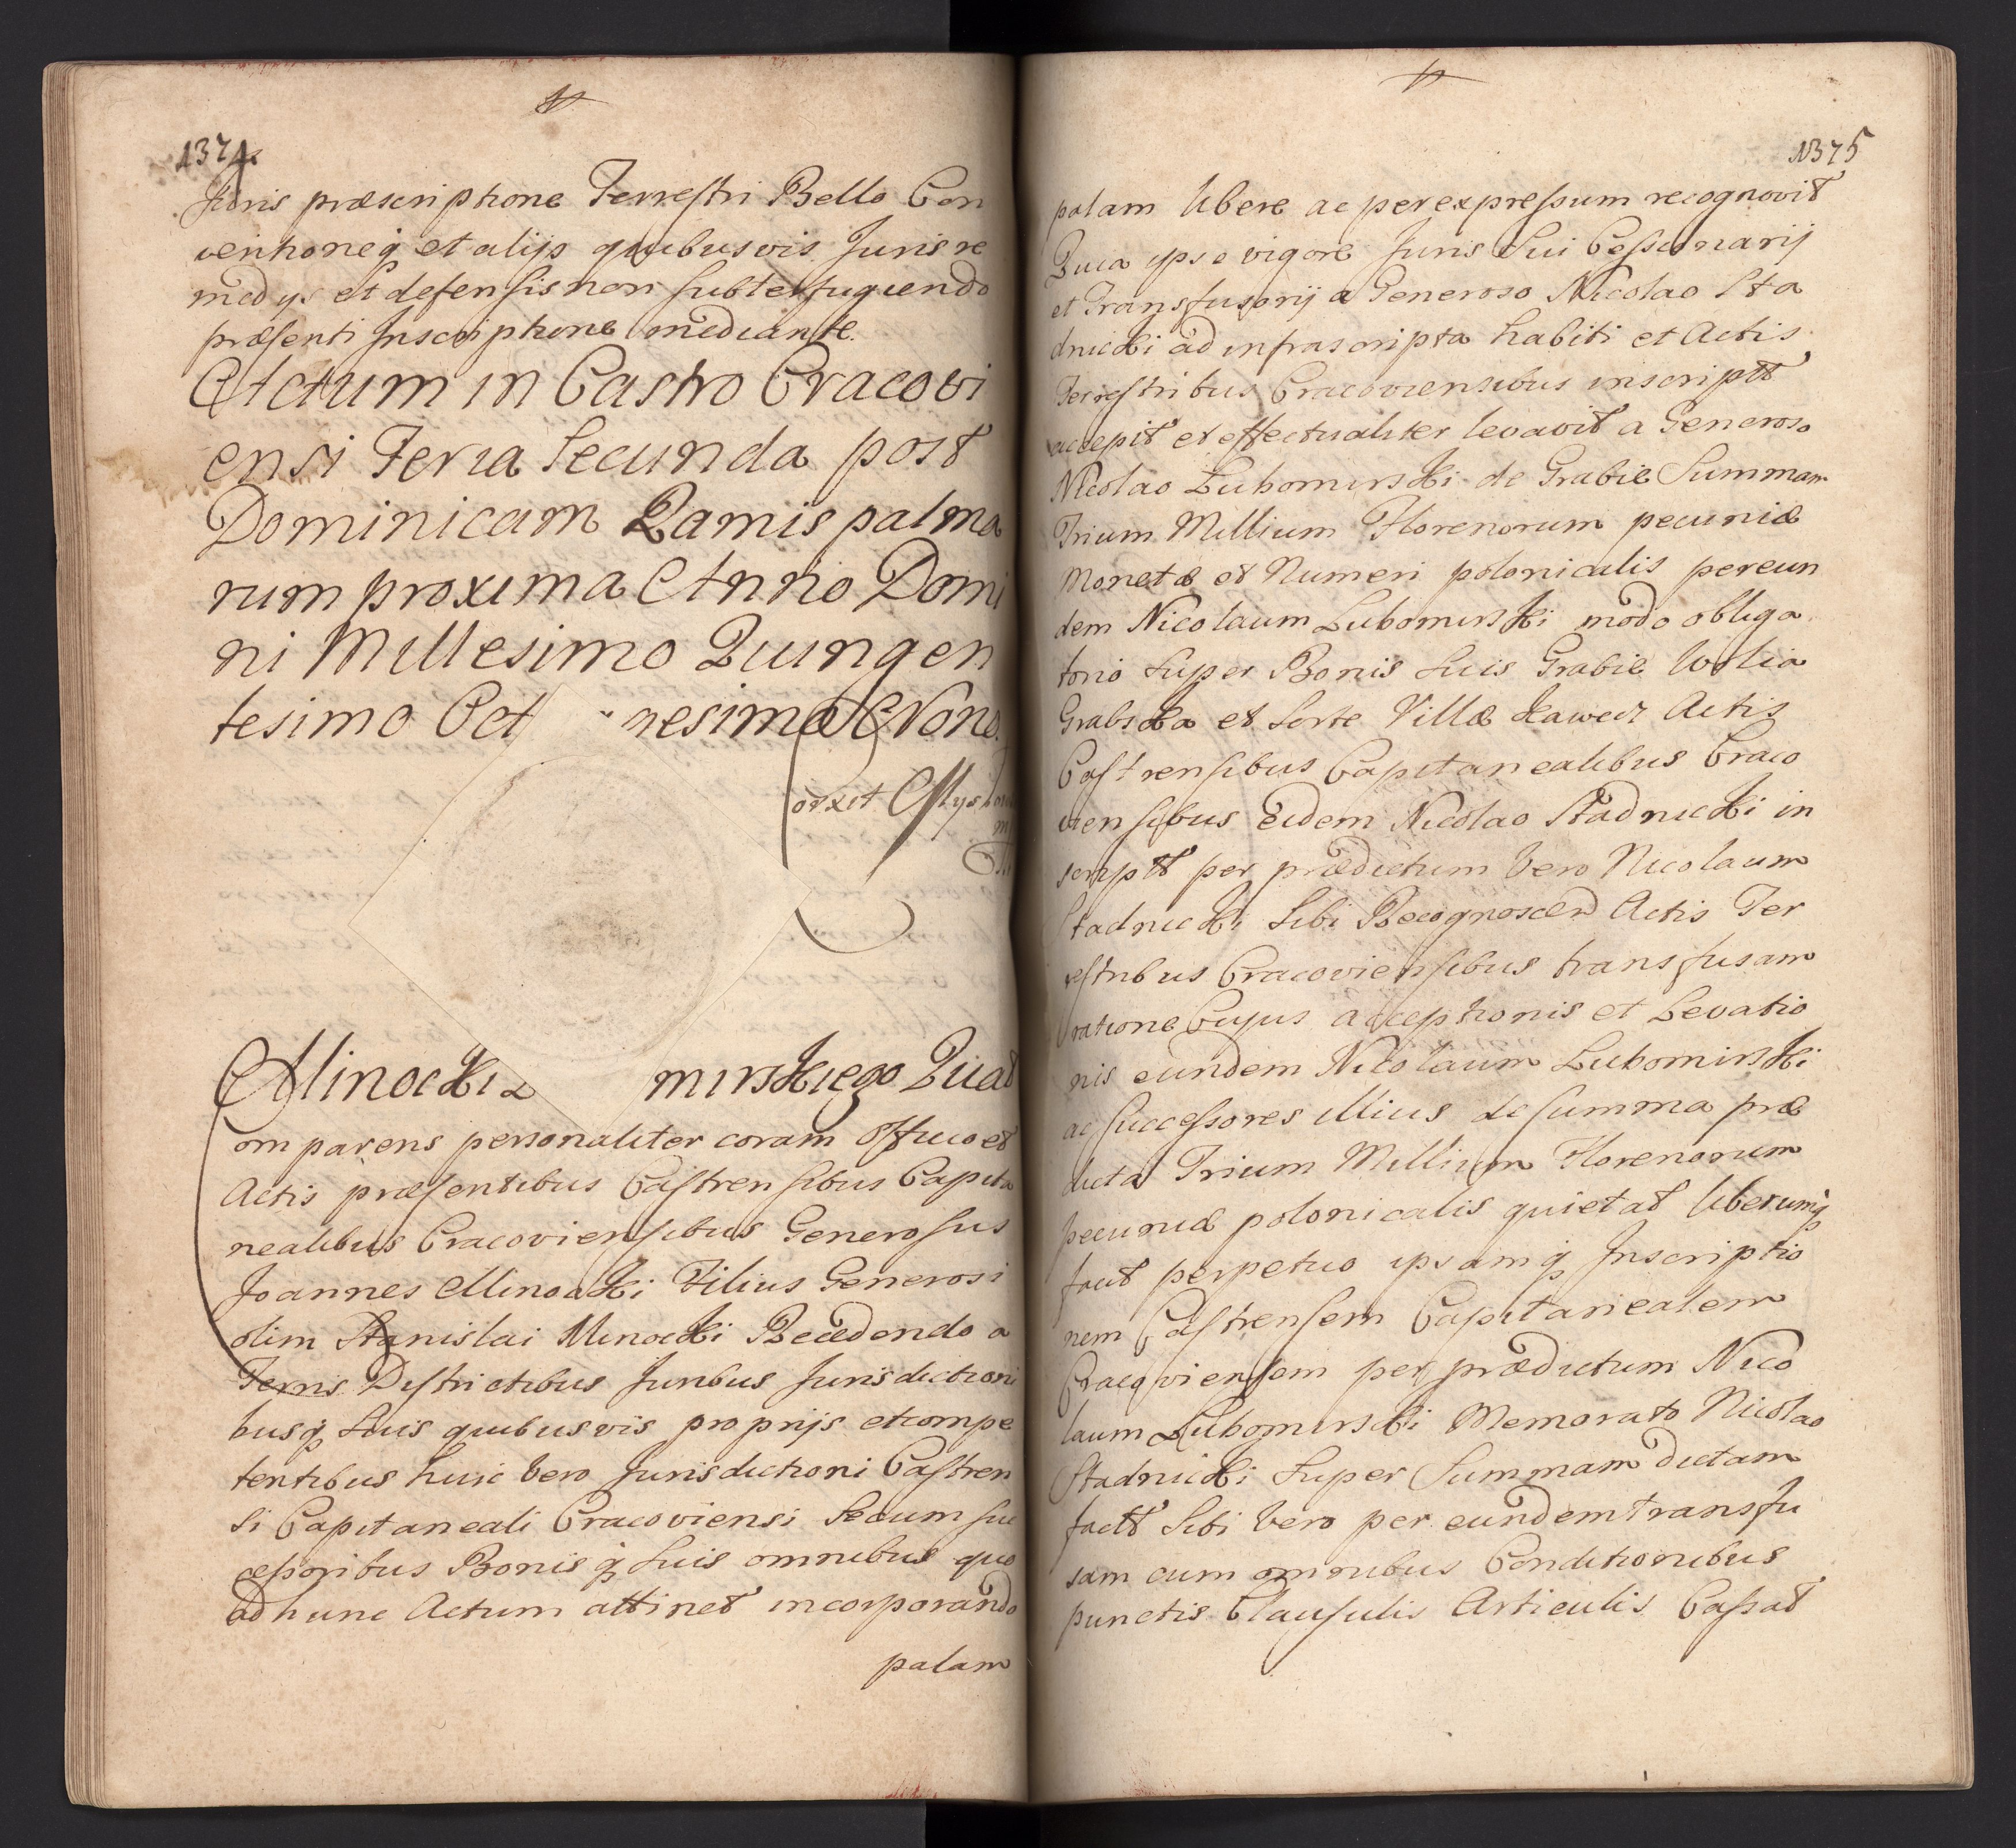 1374.
Juris præscriptione Terrestri Bello Con
ventioneq et alijs quibusvis Juris re
medijs et defensis non subterfugiendo
præsenti Inscriptione mediante.
Actum in Castro Cracovi
ensi Feria Secunda post
Dominicam Ramis palma
rum proxima Anno Domi
ni Millesimo Quingen
tesimo Oct nesimo Nono.
orxit Mys
Minocki L mirskiego Quat
omparens personaliter coram Officio et
Actis præsentibus Castrensibus Capita
nealibus Cracoviensibus Generosus
Joannes Minocki Filius Generosi
olim Stanislai Minocki Recedendo a
Terris Districtibus Juribus Jurisdictioni
busq Suis quibusvis proprijs et compe
tentibus huic vero Jurisdictioni Castren
si Capitaneali Cracoviensi Se cum suc
cessoribus Bonis q Suis omnibus quo
ad hunc Actum attinet incorporando
palam
1375
palam libere ac per expressum recognovit
Quia ipse vigore Juris Sui Cessionarij
et Transfusorij a Generoso Nicolao Sta
dnicki ad infrascripta habiti et Actis
Terrestribus Cracoviensibus inscriptt
accepit et effectualiter levavit a Generoso
Nicolao Lubomirski de Grabie Summam
Trium Millium Florenorum pecuniæ
Monetæ et Numeri polonicalis per eun
dem Nicolaum Lubomirski modo obliga
torio Super Bonis Suis Grabie Wolia
Grabska et Sorte Villæ Kawecz Actis
Castrensibus Capitanealibus Craco
viensibus Eidem Nicolao Stadnicki in
scriptt per prædictum vero Nicolaum
Stadnicki Sibi Recognoscen Actis Ter
restribus Cracoviensibus transfusam
ratione Cujus acceptionis et Levatio
nis eundem Nicolaum Lubomirski
ac Successores illius de summa præ
dicta Trium Millium Florenorum
pecuniæ polonicalis quietat liberumq
facit perpetuo ipsamq Inscriptio
nem Castrensem Capitanealem
Cracoviensem per prædictum Nico
laum Lubomirski Memorato Nicolao
Stadnicki Super Summam dictam
factt Sibi vero per eundem transfu
sam cum omnibus Conditionibus
punctis Clausulis Articulis Cassat